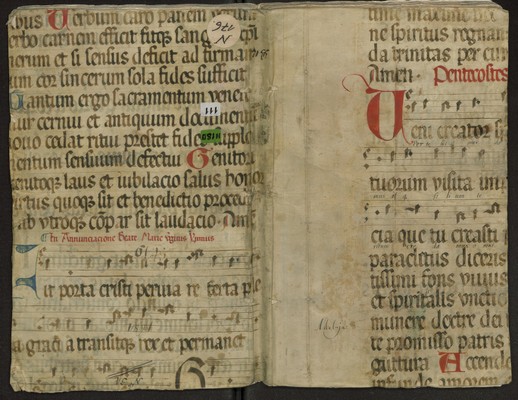 Verbum caro panem verum
verbo carnem efficit fitqz sang
uerum et si sensus deficit ad firman
um cor sincerum sola fides sufficit
antum ergo sacramentum venere
ur cernui et antiquum documen
ouo cedat ritui prestet fides supple
entum sensuum defectui Genitori
genitoqz laus et iubilacio salus honor
uirtus quoqz sit et benedictio proced
ab utroqz compar sit laudacio Amen
In Annunciacione Beate Marie virginis
it porta cristi peruia re ferta ple
a gracia transitqz rex et permanet
176
N
111
ne spiritus regnan
da trinitas per cun
Amen Pentecostes
Veni creator sp
tuorum visita im
cia que tu creasti
paraclitus diceris
tissimi fons viuus
et spiritalis vnctio
munere dextre dei
te promisso patris
guttura Accende
infunde amorem